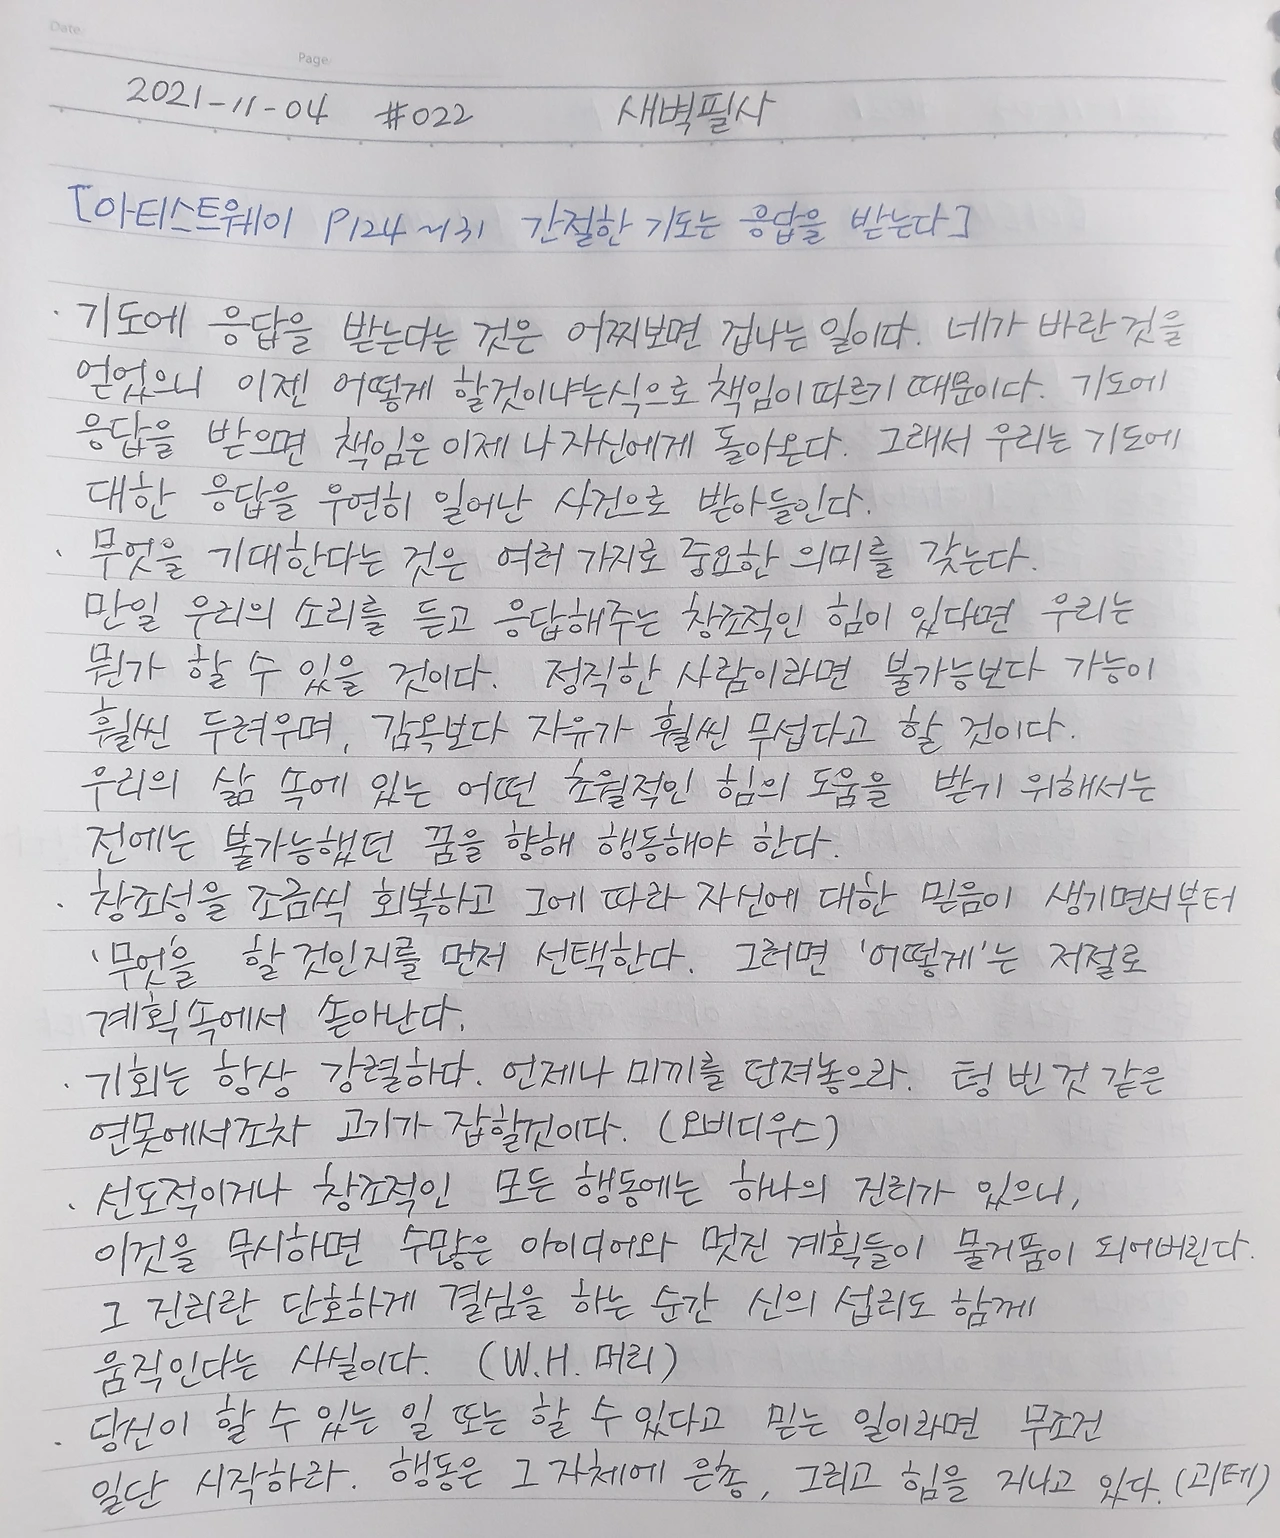 Date
Page
2021-11-04 #022 새벽필사
[아티스트웨이 P124~131 간절한 기도는 응답을 받는다]
· 기도에 응답을 받는다는 것은 어찌보면 겁나는 일이다. 네가 바란 것을
얻었으니 이젠 어떻게 할것이냐는식으로 책임이 따르기 때문이다. 기도에
응답을 받으면 책임은 이제 나 자신에게 돌아온다. 그래서 우리는 기도에
대한 응답을 우연히 일어난 사건으로 받아들인다.
· 무엇을 기대한다는 것은 여러 가지로 중요한 의미를 갖는다.
만일 우리의 소리를 듣고 응답해주는 창조적인 힘이 있다면 우리는
뭔가 할 수 있을 것이다. 정직한 사람이라면 불가능보다 가능이
훨씬 두려우며, 감옥보다 자유가 훨씬 무섭다고 할 것이다.
우리의 삶 속에 있는 어떤 초월적인 힘의 도움을 받기 위해서는
전에는 불가능했던 꿈을 향해 행동해야 한다.
· 창조성을 조금씩 회복하고 그에 따라 자신에 대한 믿음이 생기면서부터
'무엇'을 할 것인지를 먼저 선택한다. 그러면 '어떻게'는 저절로
계획속에서 솟아난다.
· 기회는 항상 강렬하다. 언제나 미끼를 던져놓으라. 텅 빈 것 같은
연못에서조차 고기가 잡힐것이다. (오비디우스)
· 선도적이거나 창조적인 모든 행동에는 하나의 진리가 있으니,
이것을 무시하면 수많은 아이디어와 멋진 계획들이 물거품이 되어버린다.
그 진리란 단호하게 결심을 하는 순간 신의 섭리도 함께
움직인다는 사실이다. (W.H. 머리)
· 당신이 할 수 있는 일 또는 할 수 있다고 믿는 일이라면 무조건
일단 시작하라. 행동은 그 자체에 은총, 그리고 힘을 지나고 있다. (괴테)